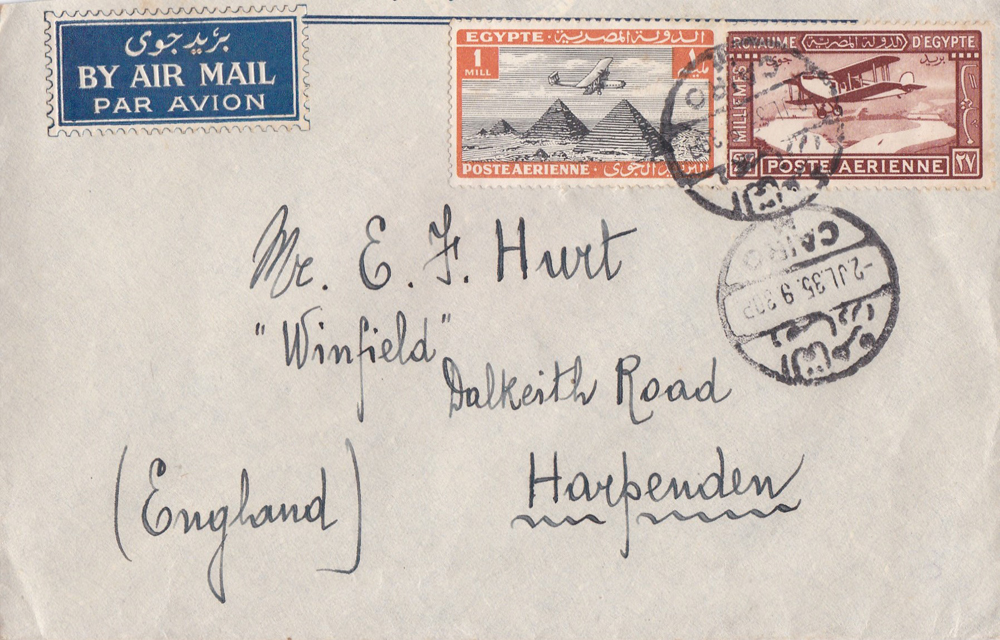 بريد جوى
BY AIR MAIL
PAR AVION
EGYPTE الدولة المصرية
1
MILL
١
مليم
POSTE AERIENNE البريد الجوى
ROYAUME الدولة المصرية D'EGYPTE
بريد جوى
MILLIEMES
27
POSTE AERIENNE
٢٧
CAIRO
القاهرة
CAIRO
-2.JL.35.9.30P
القاهرة
Mr. E. F. Hurt
"Winfield"
Dalkeith Road
Harpenden
(England)